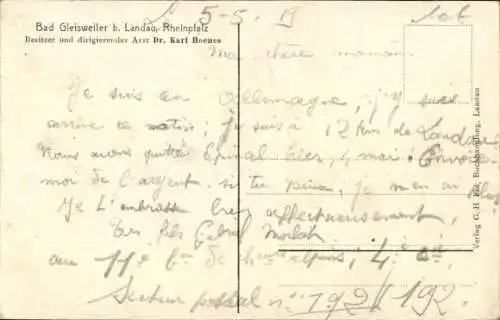 Le 5-5-19
Bad Gleisweiler b. Landau, Rheinpfalz
Besitzer und dirigierender Arzt Dr. Karl Hoenes
Ma chère maman.
Je suis en Allemagne, j'y suis
arrivé ce matin; je suis à 12 km de Landau
Nous avons quitté Epinal hier, 4 mai. Envoie-
moi de l'argent si tu peux, je n'en ai plus
Je t'embrasse bien affectueusement,
Ton fils Gabriel
au 11e Bon de chasseurs alpins, 4e Cie
Secteur postal no 192 / 192.
Verlag G. H. Buchhandlung, Landau